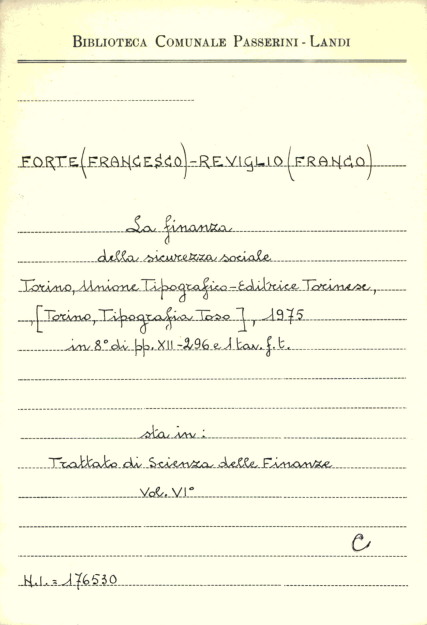 BIBLIOTECA COMUNALE PASSERINI - LANDI
FORTE (FRANCESCO) - REVIGLIO (FRANCO)
La finanza
della sicurezza sociale
Torino, Unione Tipografico-Editrice Torinese,
, [Torino, Tipografia Toso], 1975
in 8° di pp. XII-296 e 1 tav. f. t.
sta in :
Trattato di Scienza delle Finanze
Vol. VI°
C
N.I. = 176530